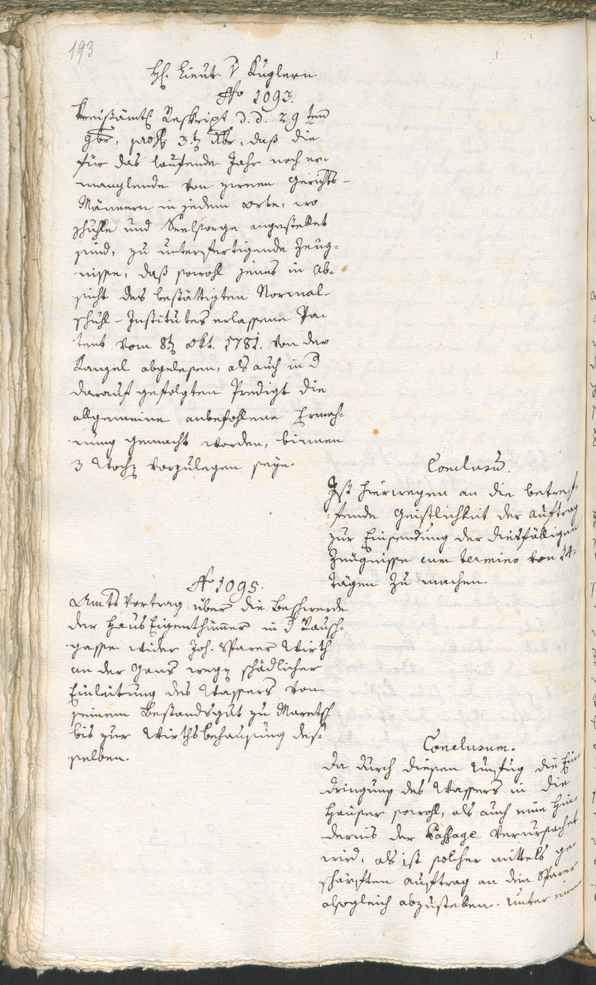 193
H. Lieut. v Kuglern.
No 1093.
Kreisämtl. Reskript d. d. 29ten
9br, 3. Xbr, daß die
für das laufende Jahr noch er-
manglende von zweÿen Gerichts-
Männern in jedem Orte, wo
Schule und Seelsorge angestellet
sind, zu unterfertigende Zeug-
nisse, daß sowohl jenes in Ab-
sicht des bestättigten Normal-
schuhl-Institutes erlassene Pa-
tent vom 8t Okt. 1781. von der
Kanzel abgelesen, als auch in d
darauf gefolgten Predigt die
allgemeine anbefohlene Ermah-
nung gemacht worden, binnen
3 Woch vorzulegen seÿe.
Conclusu.
Ist hierwegen an die betref-
fende Geistlichkeit der Auftrag
zur Einsendung der diesfälligen
Zeugnisse cum termino von 14.
Tägen zu machen.
No 1095.
Amts Vortrag über die Beschwerde
der HausEigenthümmer in d Rausch-
gassen wider Joh. Sparer Wirth
an der Gans weg schädlicher
Einleitung des Wassers von
seinem Bestandsgut zu Maretsch
bis zur Wirthsbehausung des-
selben.
Conclusum.
Da durch diesen Unfug die Ein-
dringung des Wassers in die
Häuser sowohl, als auch eine Hin-
dernis der Passage verursachet
wird, als ist solcher mittels ge-
schärften Auftrag an den Sparer
alsogleich abzustellen. Unter einem